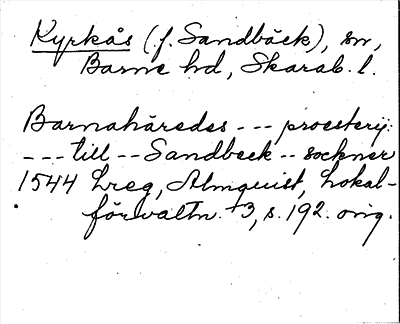 Kyrkås (f. Sandbäck), sn,
Barne hd, Skarab. l.
Barnahäredes --- proesterij:
--- till -- Sandbeck -- sockner
1544 Lreg, Almquist, Lokal-
förvaltn. +3, s. 192. orig.